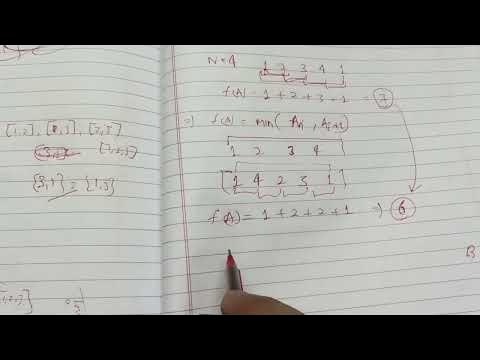 N=4 1 2 3 4 1
f(A) = 1 + 2 + 3 + 1 = 7
=) f(A) = min( Ai , Ai+1)
1 2 3 4
[1 4 2 3 1]
f(A) = 1 + 2 + 2 + 1 => 6
[1,2], [2,3], [2,3]
{3,1} = {1,3}
B